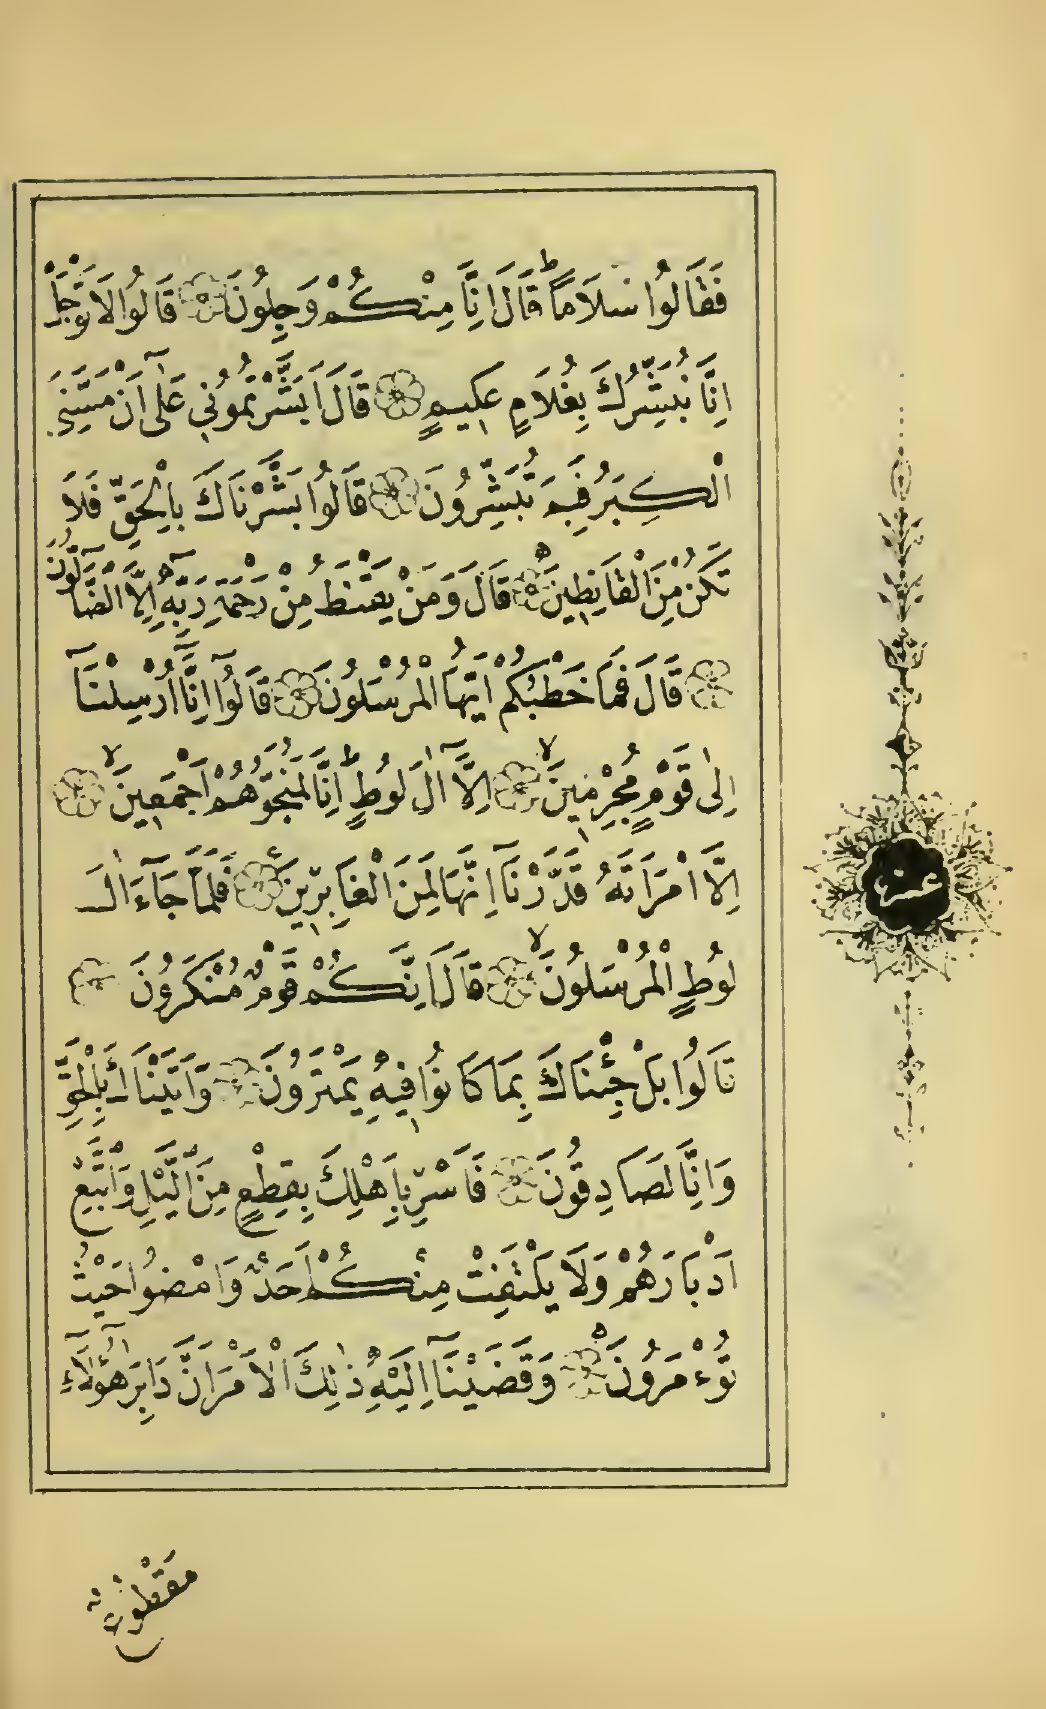 فَقَالُوا سَلَامًا ط قَالَ اِنَّا مِنْكُمْ وَجِلُونَ قَالُوا لَا تَوْجَلْ
اِنَّا نُبَشِّرُكَ بِغُلَامٍ عَلِيمٍ قَالَ اَبَشَّرْتُمُونِي عَلٰٓى اَنْ مَسَّنِيَ
الْكِبَرُ فَبِمَ تُبَشِّرُونَ قَالُوا بَشَّرْنَاكَ بِالْحَقِّ فَلَا
تَكُنْ مِنَ الْقَانِطِينَ قَالَ وَمَنْ يَقْنَطُ مِنْ رَحْمَةِ رَبِّهِٓ اِلَّا الضَّٓالُّونَ
قَالَ فَمَا خَطْبُكُمْ اَيُّهَا الْمُرْسَلُونَ قَالُوٓا اِنَّٓا اُرْسِلْنَٓا
اِلٰى قَوْمٍ مُجْرِمِينَ لا اِلَّٓا اٰلَ لُوطٍ ط اِنَّا لَمُنَجُّوهُمْ اَجْمَعِينَ لا
اِلَّا امْرَاَتَهُ قَدَّرْنَٓا اِنَّهَا لَمِنَ الْغَابِرِينَ ع فَلَمَّا جَٓاءَ اٰلَ
لُوطٍ الْمُرْسَلُونَ لا قَالَ اِنَّكُمْ قَوْمٌ مُنْكَرُونَ
قَالُوا بَلْ جِئْنَاكَ بِمَا كَانُوا فِيهِ يَمْتَرُونَ وَاَتَيْنَاكَ بِالْحَقِّ
وَاِنَّا لَصَادِقُونَ فَاَسْرِ بِاَهْلِكَ بِقِطْعٍ مِنَ الَّيْلِ وَاتَّبِعْ
اَدْبَارَهُمْ وَلَا يَلْتَفِتْ مِنْكُمْ اَحَدٌ وَامْضُوا حَيْثُ
تُؤْمَرُونَ وَقَضَيْنَٓا اِلَيْهِ ذٰلِكَ الْاَمْرَ اَنَّ دَابِرَ هٰٓؤُلَٓاءِ
مَقْطُوعٌ
عشر